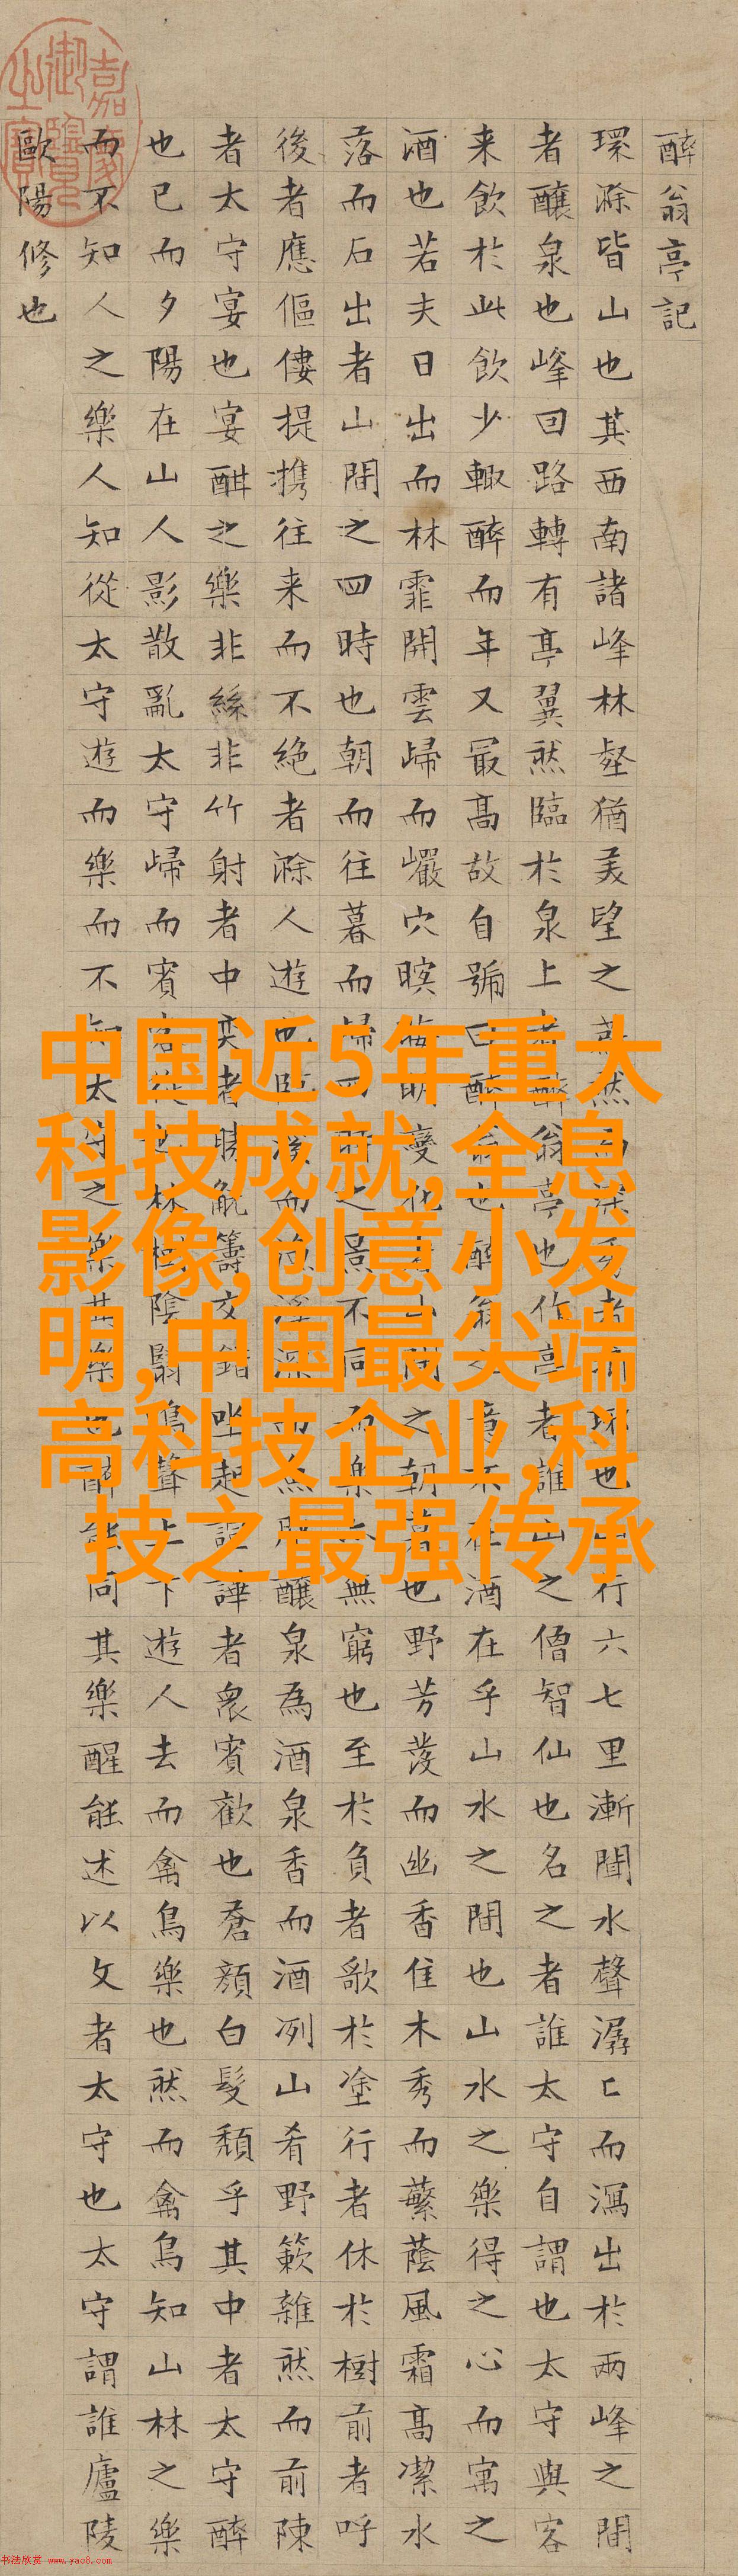 醉翁亭記
環滁皆山也其西南諸峰林壑猶美望之然也行六七里漸聞水聲潺〻而瀉出於兩峰之間
者釀泉也峰回路轉有亭翼然臨於泉上者醉翁亭也作亭者誰山之僧智仙也名之者誰太守自謂也太守與客
来飲於此飲少輒醉而年又最高故自號曰醉翁也醉翁意不在酒在乎山水之間也山水之樂得之心而寓之
酒也若夫日出而林霏開雲歸而巖穴暝明變化山間之朝也野芳發而幽香佳木秀而蘩蔭風霜高潔水
落而石出者山間之四時也朝而往暮而歸四時之景不同而樂無窮也至於負者歌於塗行者休於樹前者呼
後者應傴僂提携往来而不絶者滁人遊也臨溪而深而釀泉為酒泉香而酒冽山肴野簌雜然而前陳
者太守宴也宴酣之樂非絲非竹射者中奕者勝觥籌交錯坐起諠譁者衆賓歡也蒼顏白髮頹乎其中者太守醉
也已而夕陽在山人影散亂太守歸而賓從也林樹陰翳鳴聲上下遊人去而禽鳥樂也然而禽鳥知山林之樂
而不知人之樂人知從太守遊而樂而不知太守之樂其樂也醉能同其樂醒能述以文者太守也太守謂誰廬陵
歐陽修也
中国近5年重大
科技成就,全息
影像,创意小发
明,中国最尖端
高科技企业,科
技之最强传承
嘉慶御覽之寶
书法欣赏 www.yac8.com